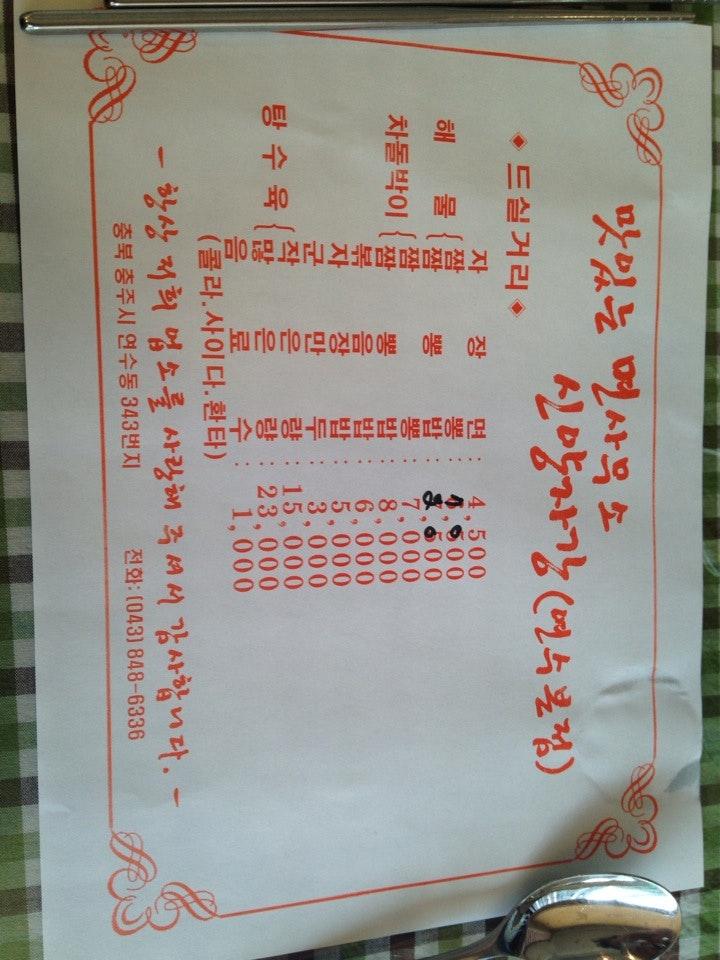 맛있는 면사무소
신양자강(연수본점)
◆ 드실거리 ◆
자장면 : 4,500
해물 { 짬뽕 :
짬뽕밥 :
차돌박이 { 짬뽕 : 7,000
짬뽕밥 : 8,000
볶음밥 : 6,000
자장밥 : 5,000
군만두 : 3,000
탕수육 { 작은량 : 15,000
많은량 : 23,000
음료수 : 1,000
(콜라.사이다.환타)
- 항상 저희 업소를 사랑해 주셔서 감사합니다. -
충북 충주시 연수동 343번지 전화: (043) 848-6336